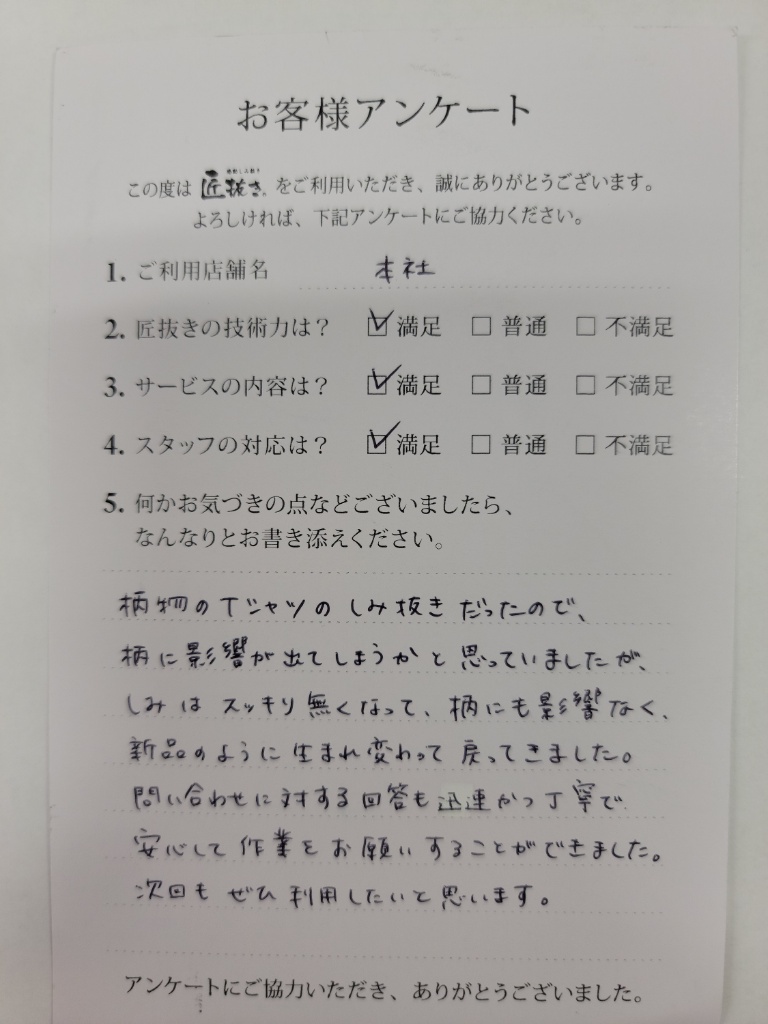 お客様アンケート
この度は 匠抜き。をご利用いただき、誠にありがとうございます。
よろしければ、下記アンケートにご協力ください。
1. ご利用店舗名 本社
2. 匠抜きの技術力は? ☑ 満足 □ 普通 □ 不満足
3. サービスの内容は? ☑ 満足 □ 普通 □ 不満足
4. スタッフの対応は? ☑ 満足 □ 普通 □ 不満足
5. 何かお気づきの点などございましたら、
なんなりとお書き添えください。
柄物のTシャツのしみ抜きだったので、
柄に影響が出てしまうかと思っていましたが、
しみはスッキリ無くなって、柄にも影響なく、
新品のように生まれ変わって戻ってきました。
問い合わせに対する回答も迅速かつ丁寧で
安心して作業をお願いすることができました。
次回もぜひ利用したいと思います。
アンケートにご協力いただき、ありがとうございました。